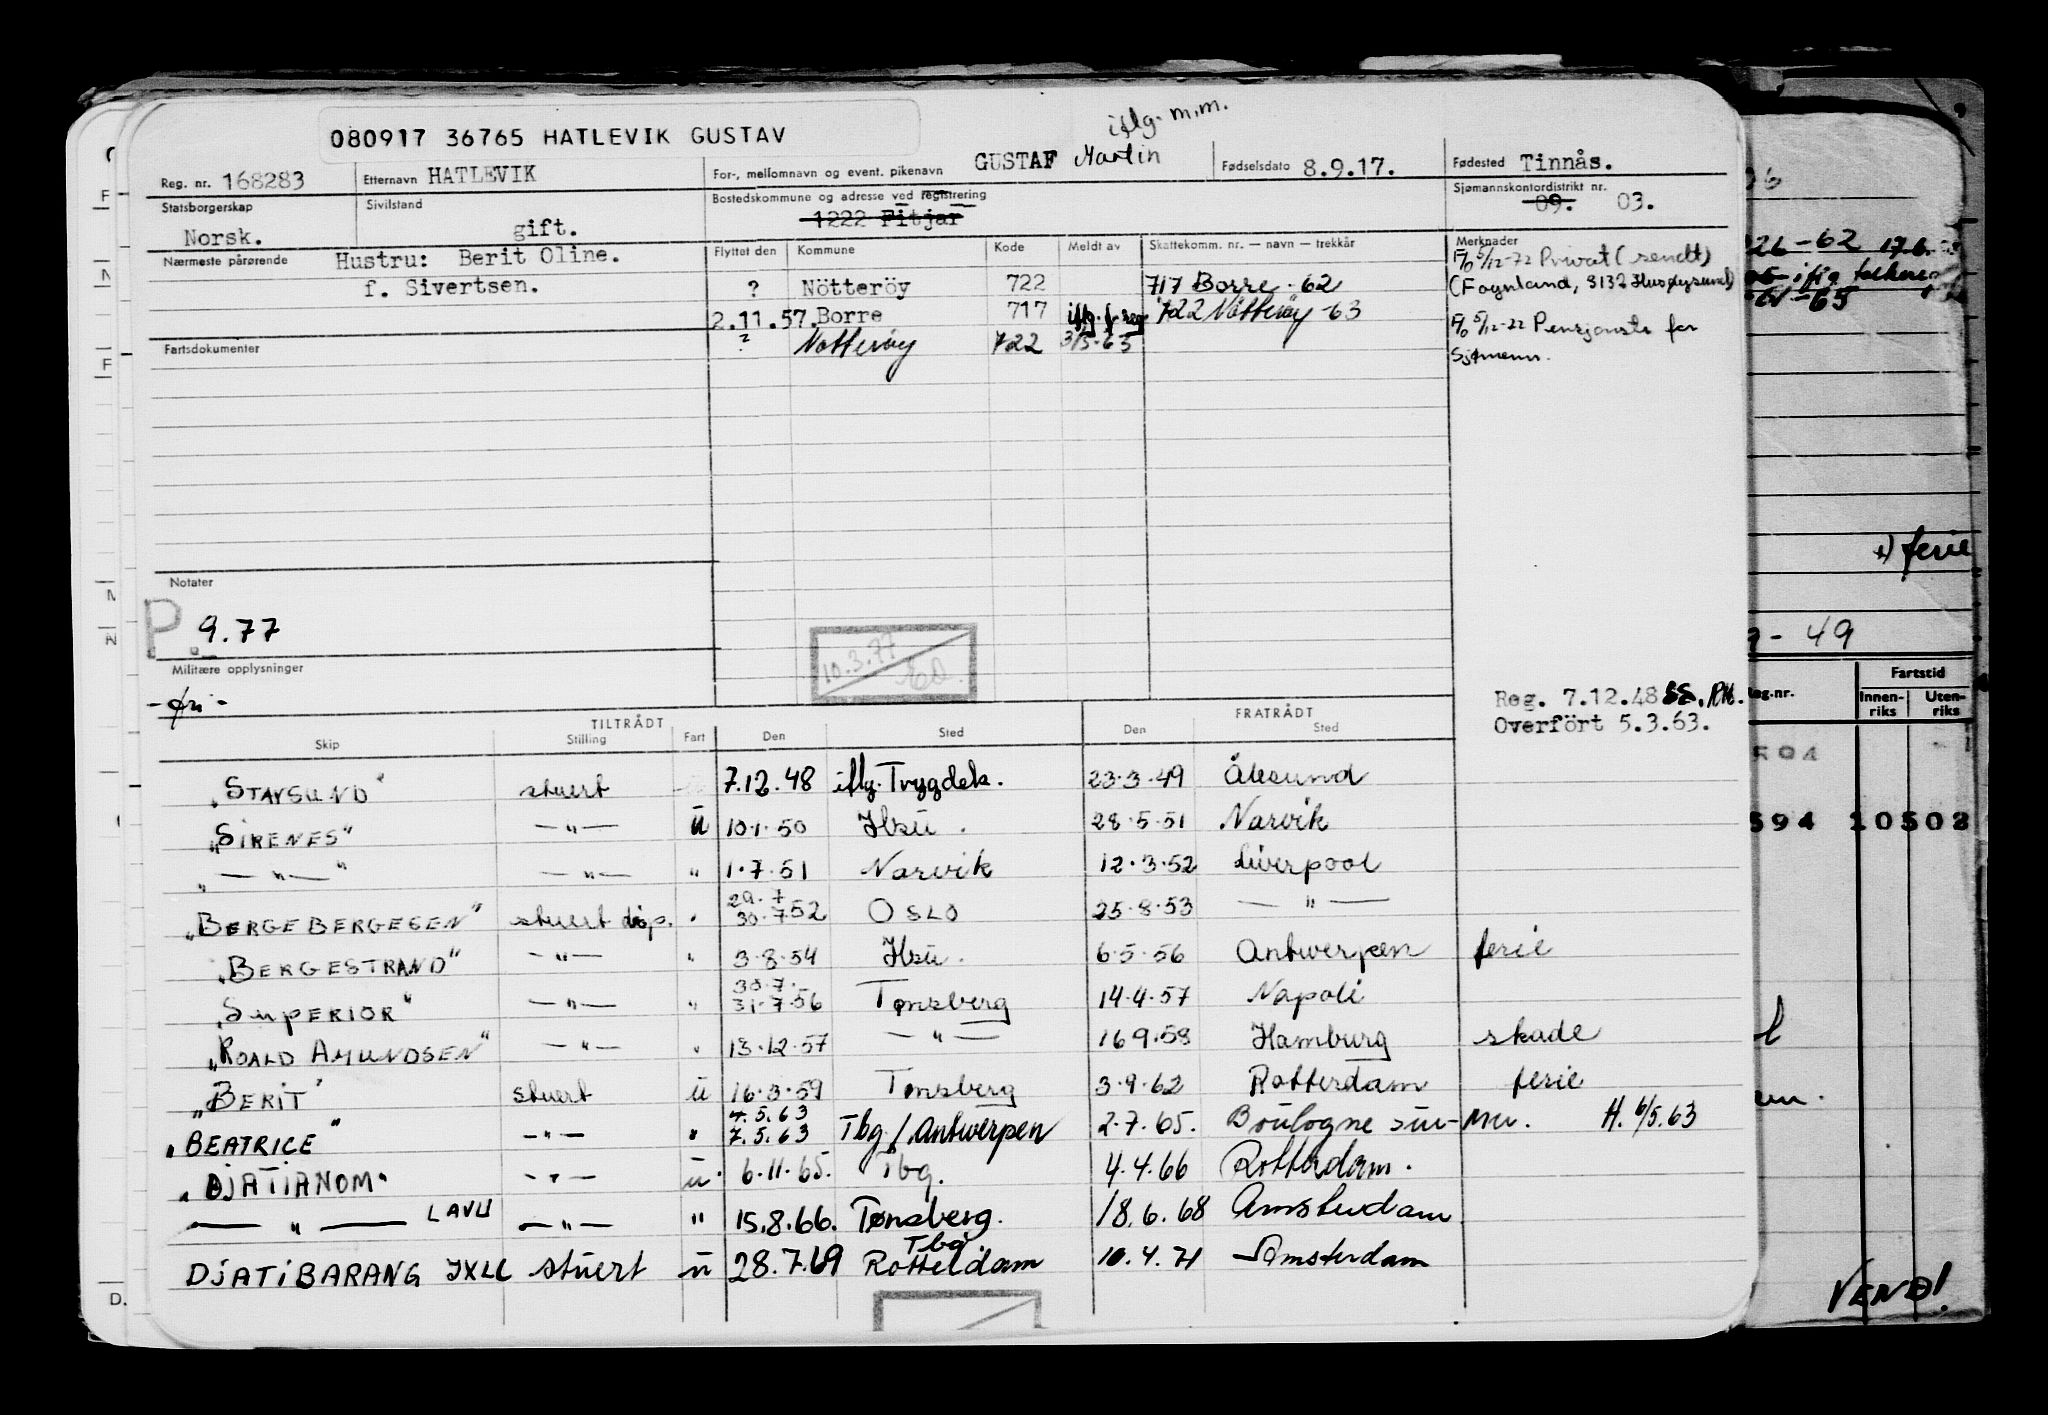 080917 36765 HATLEVIK GUSTAV
iflg. m.m.
Reg. nr. 168283 Etternavn HATLEVIK For-, mellomnavn og event. pikenavn GUSTAF Martin Fødselsdato 8.9.17. Fødested Tinnås.
Statsborgerskap Norsk. Sivilstand gift. Bostedskommune og adresse ved registrering 1222 Fitjar Sjømannskontordistrikt nr. 09. 03.
Nærmeste pårørende Hustru: Berit Oline.
f. Sivertsen.
Flyttet den Kommune Kode Meldt av Skattekomm. nr. — navn — trekkår Merknader
? Nötteröy 722 717 Borre - 62
2.11.57. Borre 717 iflg. f. reg 722 Nötteröy -63
? Nøtterøy 722 3/5-65
F/o 5/12-72 Privat (sendt)
(Føynland, 3132 Husøysund)
F/o 5/12-72 Pensjonstr for
Sjømenn.
Fartsdokumenter
Notater
P 9.77
10.3.77
Militære opplysninger
- fri -
Reg. 7.12.48 SS. PM.
Overfört 5.3.63.
TILTRÅDT FRATRÅDT
Skip Stilling Fart Den Sted Den Sted
"STAVSUND" stuert 7.12.48 iflg. Trygdek. 23.3.49 Ålesund
"SIRENES" — " — u 10.1.50 Hsu. 28.5.51 Narvik
" — " — " — " — " 1.7.51 Narvik 12.3.52 Liverpool
"BERGE BERGESEN" stuert disp. " 29.7 30.7.52 OSLO 25.8.53 — " —
"BERGESTRAND" — " — " 3.8.54 Hsu. 6.5.56 Antwerpen ferie
"SUPERIOR" — " — " 30.7. 31.7.56 Tønsberg 14.4.57 Napoli
"ROALD AMUNDSEN" — " — " 13.12.57 — " — 16 9.58 Hamburg skade
"BERIT" stuert u 16.3.59 Tønsberg 3.9.62 Rotterdam ferie
"BEATRICE" — " — " 4.5.63 7.5.63 Tbg / Antwerpen 2.7.65. Boulogne sur-Mer. H. 6/5.63
"DJATIANOM" — " — u. 6.11.65. Tbg. 4.4.66 Rotterdam.
— " — LAVU — " — " 15.8.66. Tønsberg. 18.6.68 Amsterdam
DJATIBARANG JXLC stuert u 28.7.69 Tbg Rotterdam 10.4.71 Amsterdam
226-62 176.
-65
+) ferie
- 49
Reg.nr. Fartstid
Innen-riks Uten-riks
594
594 10502
VEND!